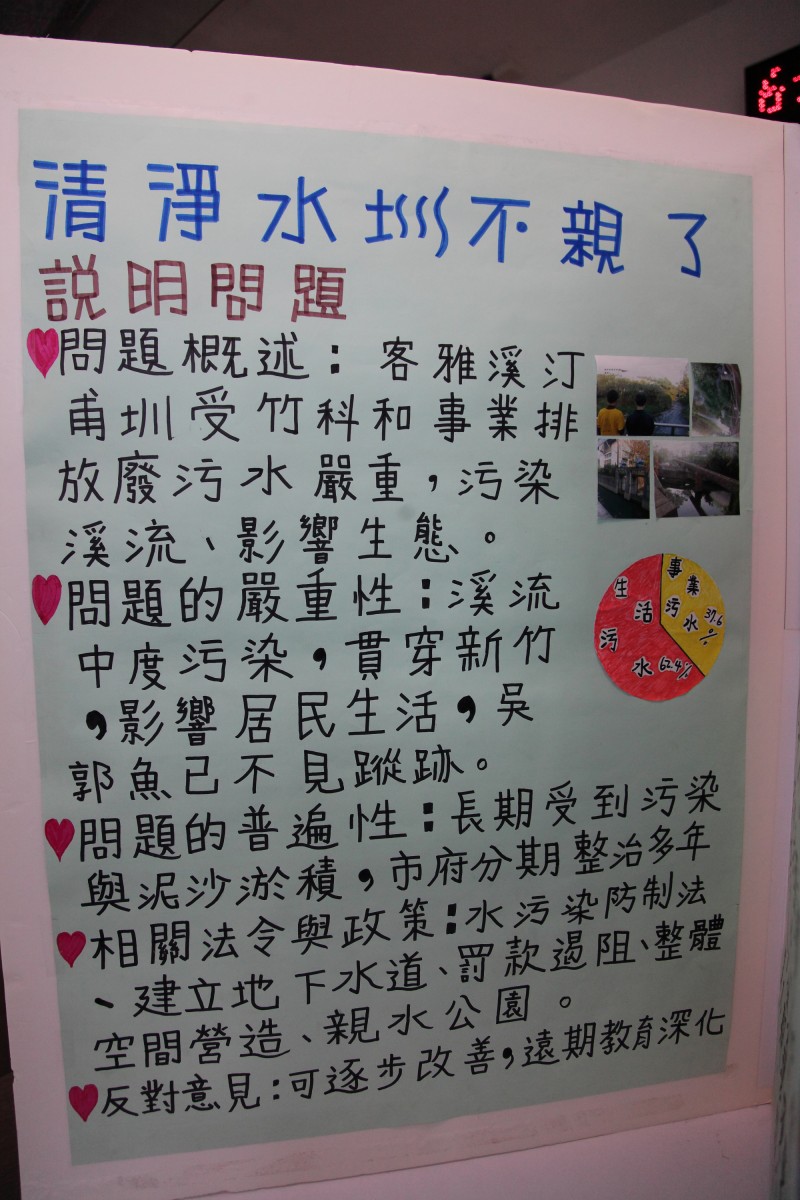 清淨水圳不親了
說明問題
問題概述：客雅溪汀
甫圳受竹科和事業排
放廢污水嚴重，污染
溪流、影響生態。
問題的嚴重性：溪流
中度污染，貫穿新竹
，影響居民生活，吳
郭魚已不見蹤跡。
問題的普遍性：長期受到污染
與泥沙淤積，市府分期整治多年
相關法令與政策：水污染防制法
、建立地下水道、罰款遏阻、整體
空間營造、親水公園。
反對意見：可逐步改善，遠期教育深化
事業
污水
37.6%
生活
污水
62.4%